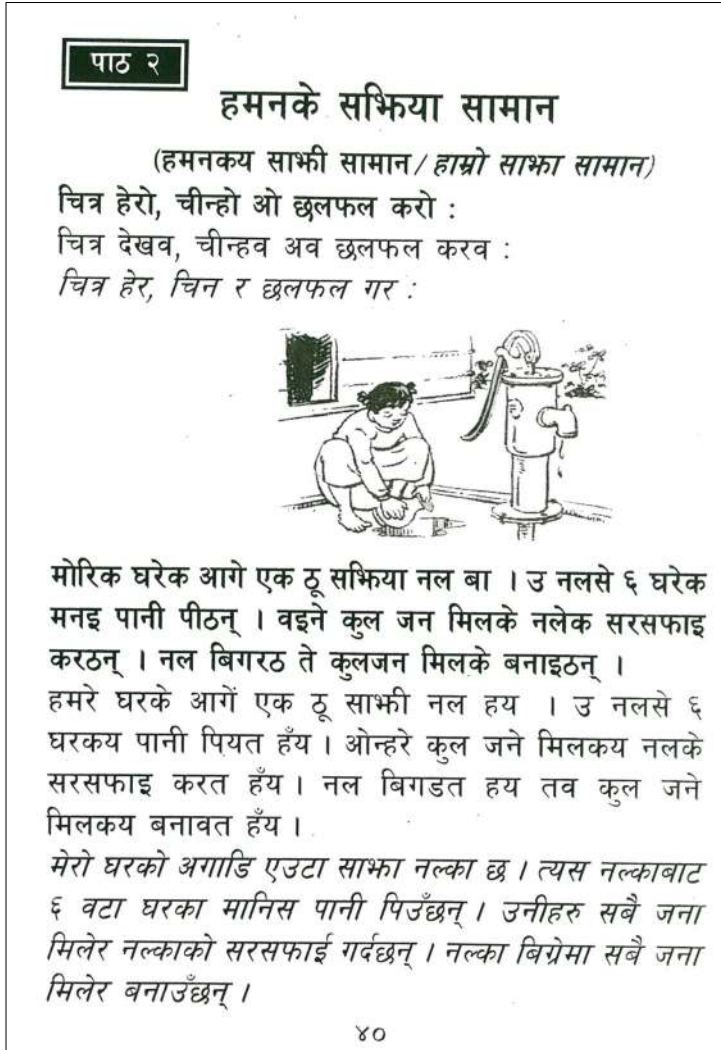 पाठ २
हमनके सझिया सामान
(हमनकय साझी सामान/हाम्रो साझा सामान)
चित्र हेरो, चीन्हो ओ छलफल करो :
चित्र देखव, चीन्हव अव छलफल करव :
चित्र हेर, चिन र छलफल गर :
मोरिक घरेक आगे एक ठू सझिया नल बा । उ नलसे ६ घरेक
मनइ पानी पीठन् । वइने कुल जन मिलके नलेक सरसफाइ
करठन् । नल बिगरठ ते कुलजन मिलके बनाइठन् ।
हमरे घरके आगें एक ठू साझी नल हय । उ नलसे ६
घरकय पानी पियत हँय । ओन्हरे कुल जने मिलकय नलके
सरसफाइ करत हँय । नल बिगडत हय तव कुल जने
मिलकय बनावत हँय ।
मेरो घरको अगाडि एउटा साझा नल्का छ । त्यस नल्काबाट
६ वटा घरका मानिस पानी पिउँछन् । उनीहरु सबै जना
मिलेर नल्काको सरसफाई गर्दछन् । नल्का बिग्रेमा सबै जना
मिलेर बनाउँछन् ।
४०